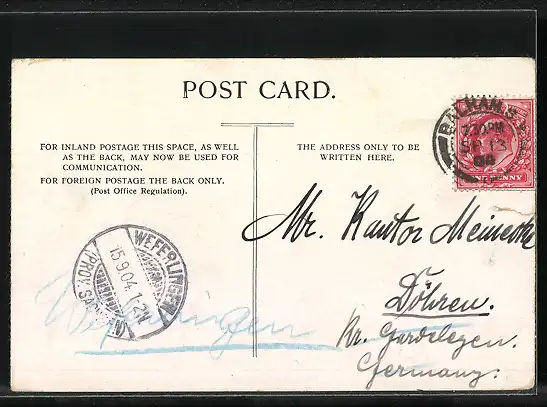 POST CARD.
FOR INLAND POSTAGE THIS SPACE, AS WELL
AS THE BACK, MAY NOW BE USED FOR
COMMUNICATION.
FOR FOREIGN POSTAGE THE BACK ONLY.
(Post Office Regulation).
THE ADDRESS ONLY TO BE
WRITTEN HERE.
BALHAM S.
SP 13
ONE PENNY
Mr. Kantor Meinecke
Döhren.
Kr. Gardelegen.
Germany.
WEFERLINGEN
15.9.04. 1-2N
(PROV. SACHSEN)
Weferlingen